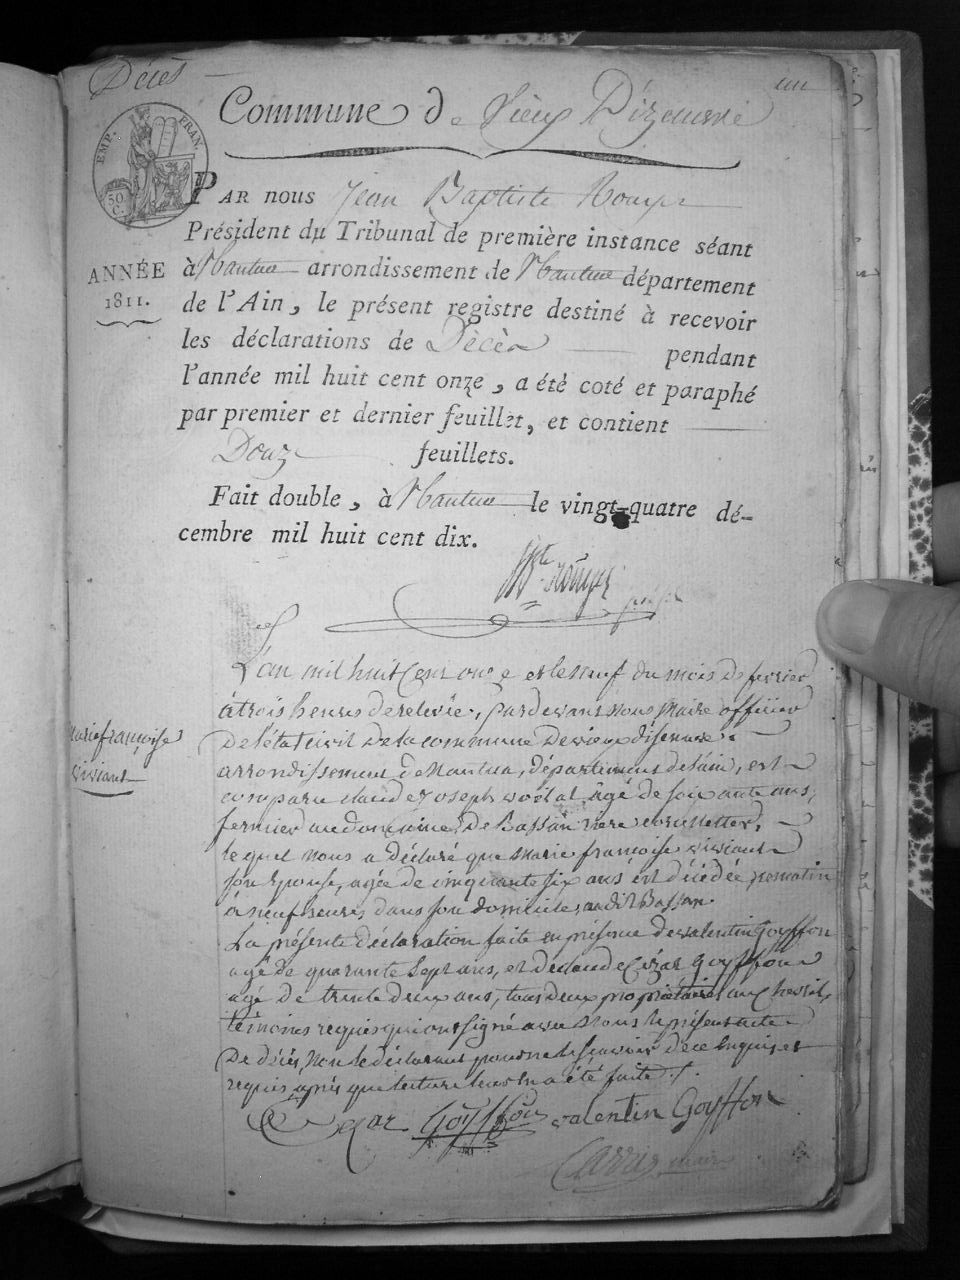 Décès
un
Commune de Vieux Dizenave
EMP. FRAN.
50 C.
PAR nous Jean Baptiste Rouyer
Président du Tribunal de première instance séant
ANNÉE
1811.
à Nantua arrondissement de Nantua département
de l'Ain, le présent registre destiné à recevoir
les déclarations de Décès pendant
l'année mil huit cent onze, a été coté et paraphé
par premier et dernier feuillet, et contient
Douze feuillets.
Fait double, à Nantua le vingt-quatre dé-
cembre mil huit cent dix.
L'an mil huit cent onze et le neuf du mois de fevrier
à trois heures de relevée, pardevant nous Maire officier
De l'état civil De la commune De vieux disenave
arrondissement de Nantua, département de l'ain, est
comparu claude joseph agé de soixante ans,
fermier au domaine De Bassan
lequel nous a déclaré que Marie françoise viviant
son epouse, agée de cinquante six ans est décédée ce matin
à neuf heures, dans son domicile, audit Bassan.
La présente déclaration faite en présence de valentin Goyffon
agé de quarante sept ans, et de claude Cézar goyffon
agé De trente deux ans, tous deux propriétaires au Chevril,
témoins requis qui ont signé avec Nous le présent acte
De décès, Non le déclarant pour ne le sçavoir De ce enquis et
requis après que lecture leur en a été faite ./.
Marie françoise
viviant
Cezar Goyffon valentin Goyffon
Carrier maire